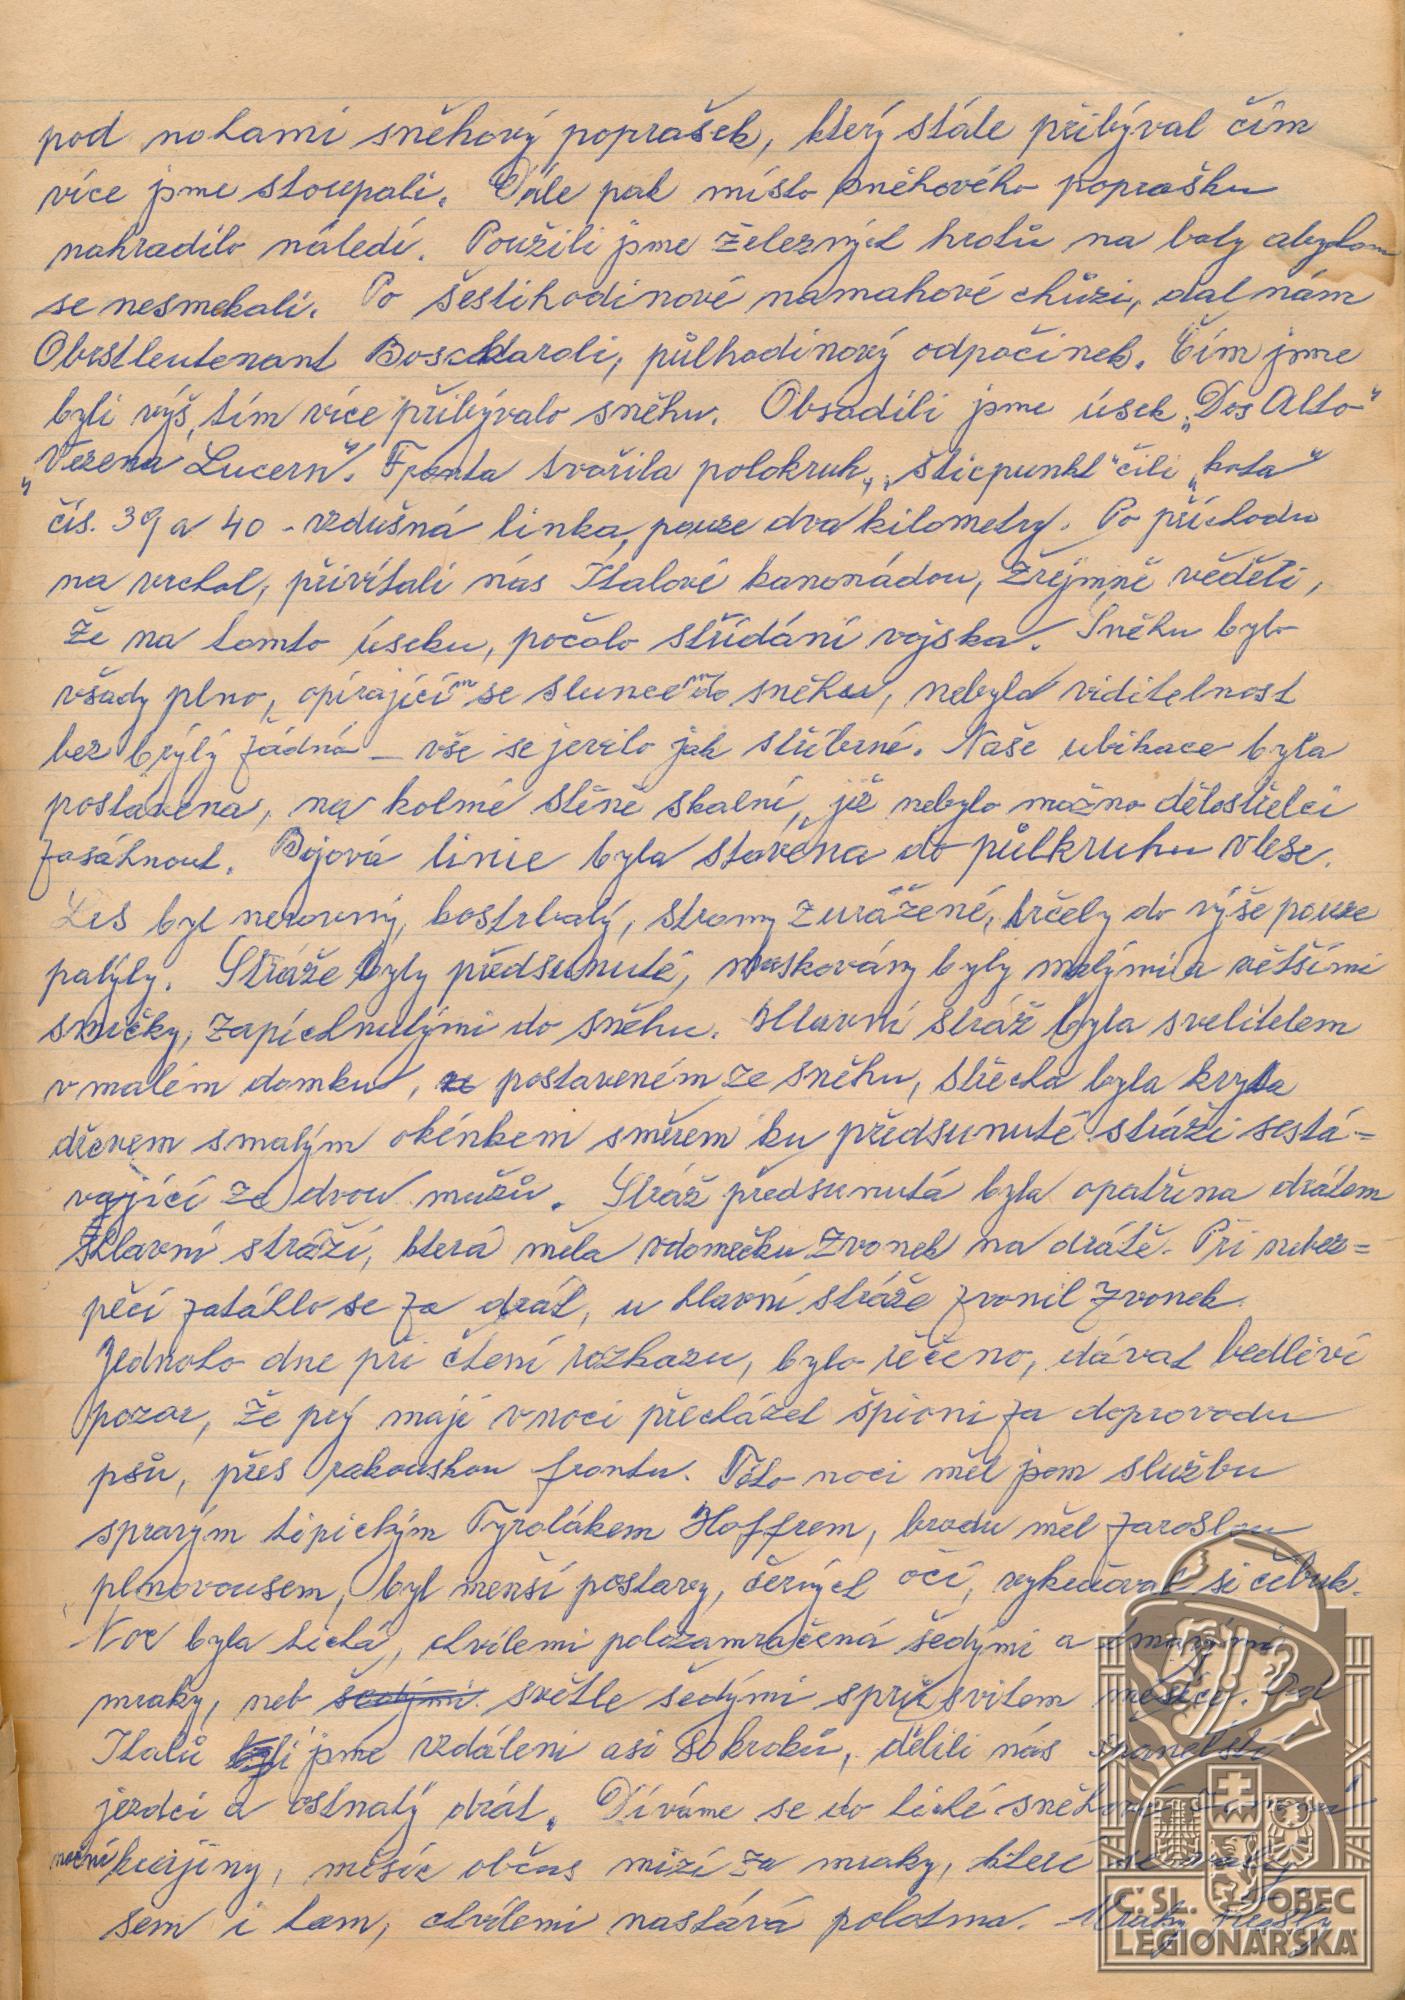 pod nohami sněhový poprašek, který stále přibýval čím
více jme stoupali. Dále pak místo sněhového poprašku
nahradilo náledí. Použili jme železných hrotů na boty abychom
se nesmekali. Po šestihodinové namahové chůzi, dal nám
Obrstleutenant Boszkaroli, půlhodinový odpočinek. Čím jme
byli výš, tím více přibývalo sněhu. Obsadili jme úsek „Dos Alto"
„Vezena Lucern". Fronta tvořila polokruh, „šticpunkt" čili „kota"
čís. 39 a 40 - vzdušná linka, pouze dva kilometry. Po příchodu
na vrchol, přivítali nás Italové kanonádou, zřejmně věděli,
že na tomto úseku, počalo střídání vojska. Sněhu bylo
všady plno, opírající se slunce do sněhu, nebyla viditelnost
bez brýlý žádná - vše se jevilo jak stříbrné. Naše ubikace byla
postavena, na kolmé stěně skalní, již nebylo možno dělostřelci
zasáhnout. Bojová linie byla stavěna do půlkruhu v lese.
Les byl nerovný, kostrbatý, stromy zurážené, trčely do výše pouze
pahýly. Stráže byly předsunuté, maskovány byly malými a většími
smrčky, zapíchnutými do sněhu. Hlavní stráž byla svelitelem
v malém domku, postaveném ze sněhu, střecha byla kryta
dřevem smalým okénkem směrem ku předsunuté stráži sestá=
vající ze dvou mužů. Stráž předsunutá byla opatřena drátem
s hlavní stráží, která měla vdomečku zvonek na drátě. Při nebez=
pečí zatáhlo se za drát, u hlavní stráže zvonil zvonek.
Jednoho dne při čtení rozkazu, bylo řečeno, dávat bedliví
pozor, že prý mají v noci přecházet špioni za doprovodu
psů, přes rakouskou frontu. Této noci měl jsem službu
spravým tipickým Tyrolákem Hoffrem, bradu měl zaroslou
plnovousem, byl menší postavy, černých očí, vykuřoval si čibuk.
Noc byla tichá, chvílemi polozamračená šedými a tmavými
mraky, neb šedými světle šedými spříž svitem měsíce. Od
Italů byli jme vzdáleni asi 80 kroků, dělili nás španělští
jezdci a ostnatý drát. Díváme se do tiché sněhové
noční krajiny, měsíc občas mizí za mraky, které se
sem i tam, chvílemi nastává polotma. Mraky
C. SL. OBEC
LEGIONÁŘSKÁ